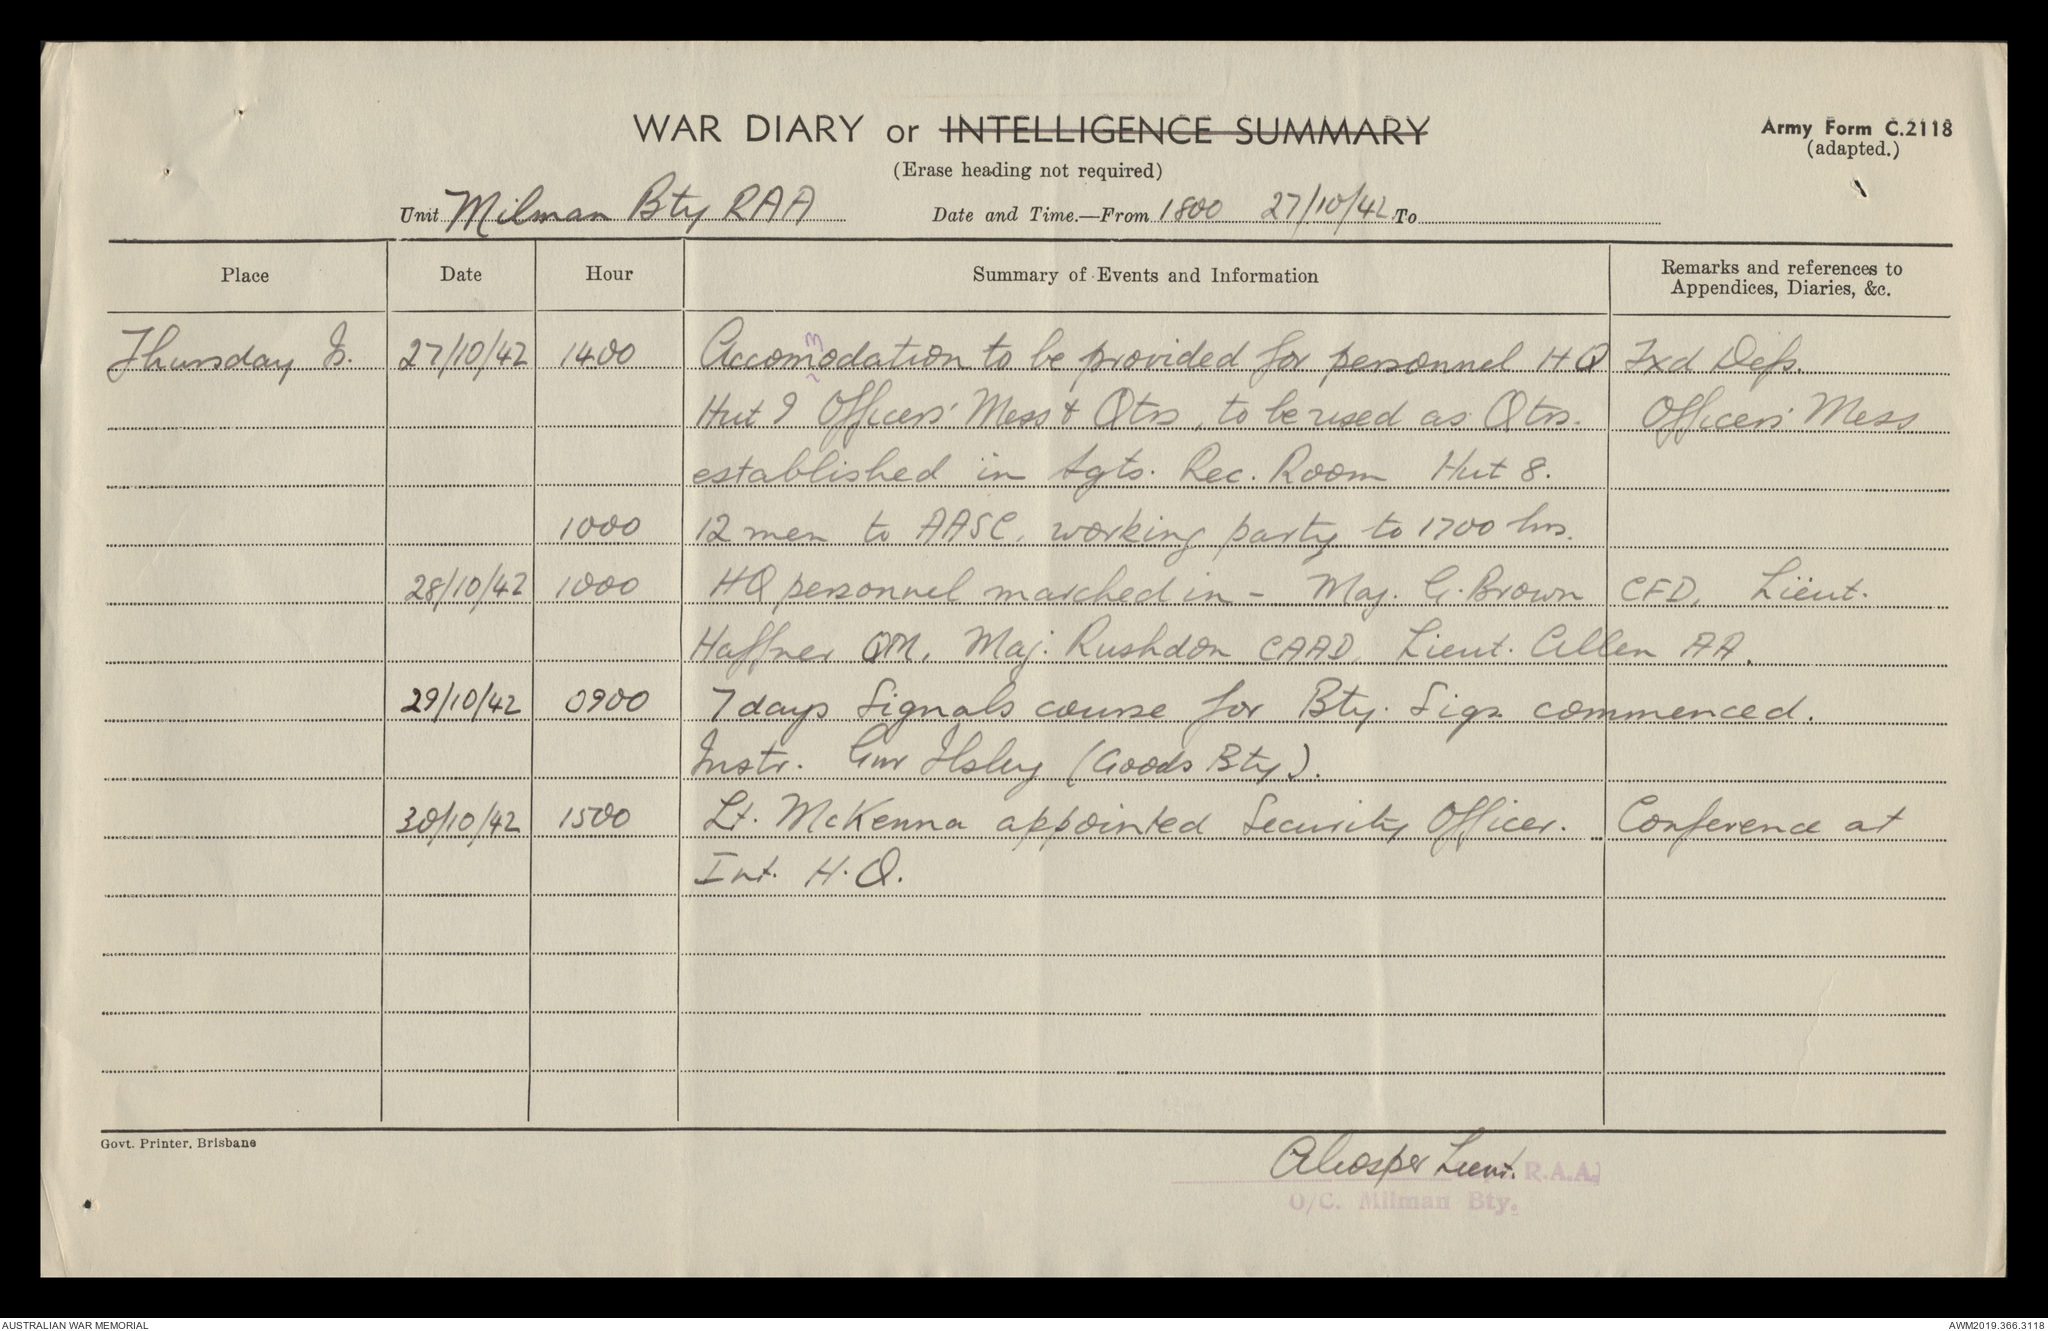 WAR DIARY or INTELLIGENCE SUMMARY
Army Form C.2118
(adapted.)
(Erase heading not required)
Unit Milman Bty RAA Date and Time.—From 1800 27/10/42 To
Place Date Hour Summary of Events and Information Remarks and references to
Appendices, Diaries, &c.
Thursday Is. 27/10/42 1400 Accomodation to be provided for personnel HQ Fxd Defs.
m
Hut 9 Officers' Mess & Qtrs, to be used as Qtrs. Officers' Mess
established in Sgts. Rec. Room Hut 8.
1000 12 men to AASC, working party to 1700 hrs.
28/10/42 1000 HQ personnel marched in - Maj. G. Brown CFD, Lieut.
Haffner QM, Maj. Rushdon CAAD, Lieut. Allen AA.
29/10/42 0900 7 days Signals course for Bty. Sigs commenced.
Instr. Gnr Ilsley (Goods Bty).
30/10/42 1500 Lt. McKenna appointed Security Officer. Conference at
Int. H.Q.
Govt. Printer, Brisbane
Lieut. R.A.A.
O/C. Milman Bty.
AUSTRALIAN WAR MEMORIAL
AWM2019.366.3118